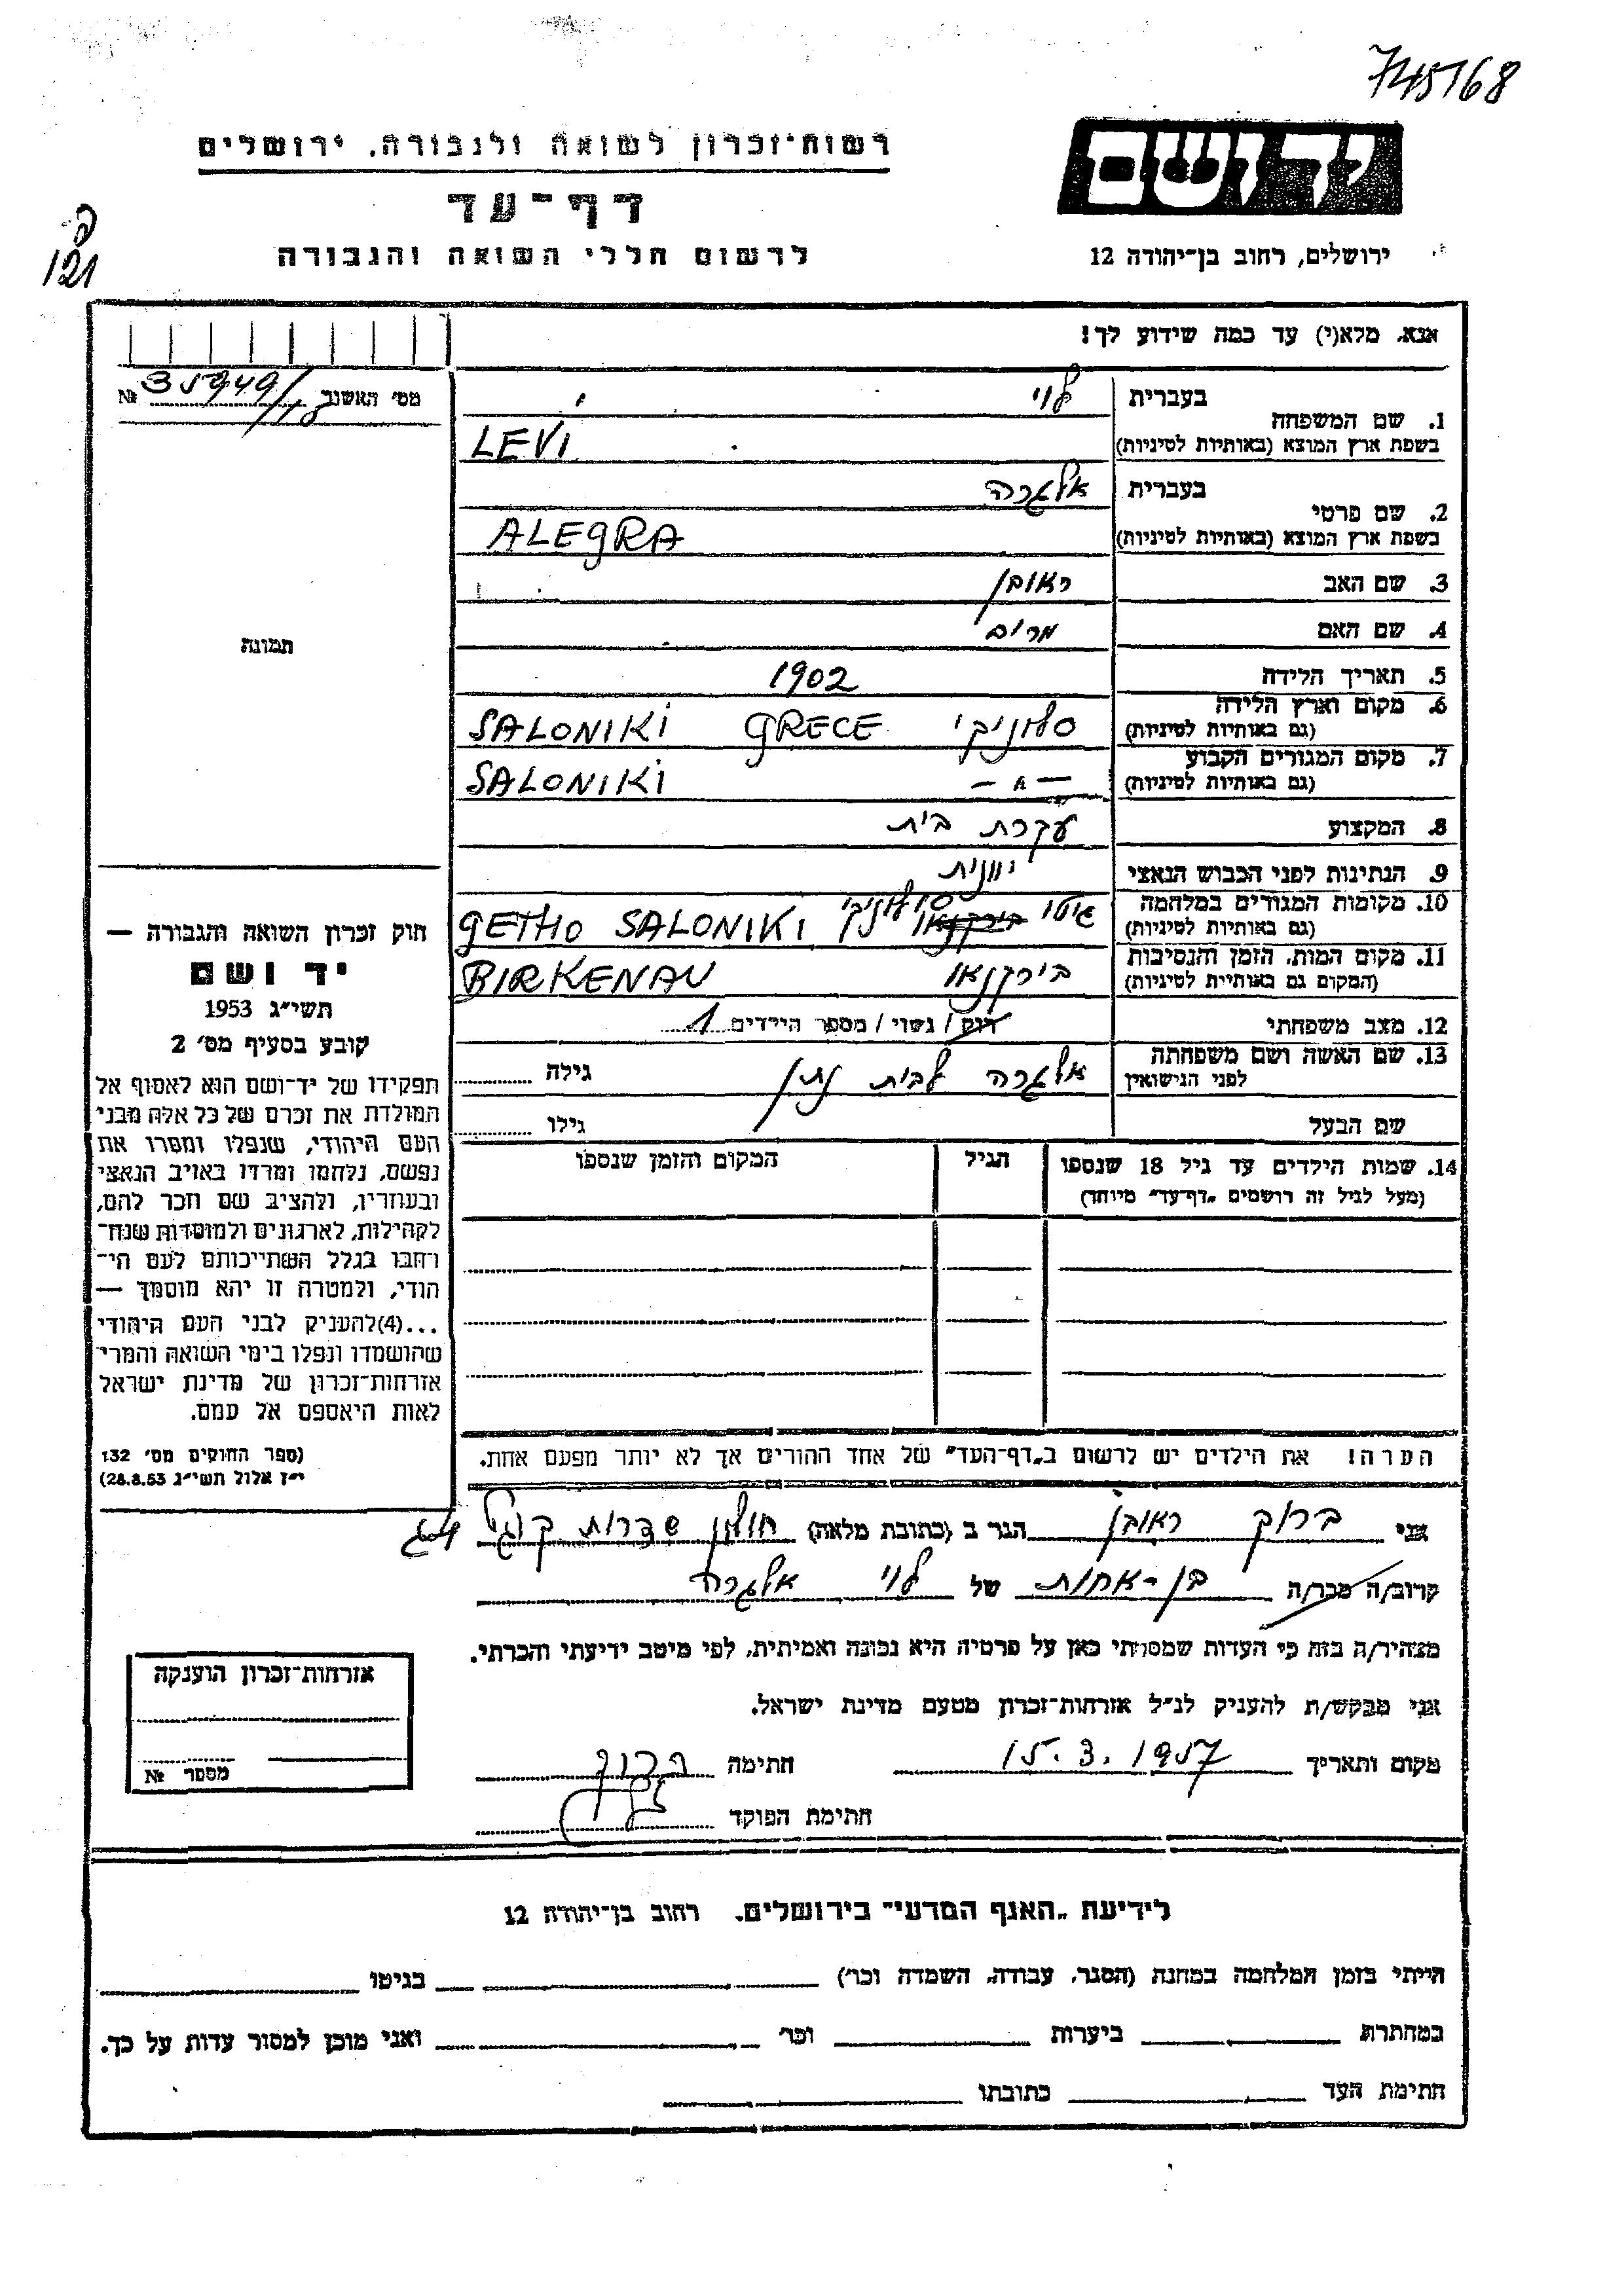 745168
יד ושם
רשות־זכרון לשואה ולגבורה, ירושלים
דף־עד
לרשום חללי השואה והגבורה
ירושלים, רחוב בן־יהודה 12
121
אנא, מלא(י) עד כמה שידוע לך!
מס׳ האשוב 35949/18 №
תמונה
1. שם המשפחה בעברית לוי
בשפת ארץ המוצא (באותיות לטיניות) LEVI
2. שם פרטי בעברית אלגרה
בשפת ארץ המוצא (באותיות לטיניות) ALEGRA
3. שם האב ראובן
4. שם האם מרים
5. תאריך הלידה 1902
6. מקום וארץ הלידה (גם באותיות לטיניות) סלוניקי GRECE SALONIKI
7. מקום המגורים הקבוע (גם באותיות לטיניות) — " — SALONIKI
8. המקצוע עקרת בית
9. הנתינות לפני הכבוש הנאצי יוונית
10. מקומות המגורים במלחמה (גם באותיות לטיניות) גיטו בירקנאו סלוניקי GETHO SALONIKI
11. מקום המות, הזמן והנסיבות (המקום גם באותיות לטיניות) בירקנאו BIRKENAU
12. מצב משפחתי רווק / נשוי / מספר הילדים 1
13. שם האשה ושם משפחתה לפני הנישואין אלגרה לבית נתן גילה
שם הבעל גילו
14. שמות הילדים עד גיל 18 שנספו הגיל המקום והזמן שנספו
(מעל לגיל זה רושמים „דף־עד״ מיוחד)
הערה! את הילדים יש לרשום ב„דף־העד״ של אחד ההורים אך לא יותר מפעם אחת.
חוק זכרון השואה והגבורה —
יד ושם
תשי״ג 1953
קובע בסעיף מס׳ 2
תפקידו של יד־ושם הוא לאסוף אל
המולדת את זכרם של כל אלה מבני
העם היהודי, שנפלו ומסרו את
נפשם, נלחמו ומרדו באויב הנאצי
ובעוזריו, ולהציב שם וזכר להם,
לקהילות, לארגונים ולמוסדות שנח־
רחבו בגלל השתייכותם לעם הי־
הודי, ולמטרה זו יהא מוסמך —
...(4)להעניק לבני העם היהודי
שהושמדו ונפלו בימי השואה והמרי
אזרחות־זכרון של מדינת ישראל
לאות היאספם אל עמם.
(ספר החוקים מס׳ 132
י״ז אלול תשי״ג 28.8.53)
אני ברוך ראובן הגר ב (כתובת מלאה) חולון שדרות קוגל
קרוב/ה מכר/ה בן-אחות של לוי אלגרה
מצהיר/ה בזה כי העדות שמסרתי כאן על פרטיה היא נכונה ואמיתית, לפי מיטב ידיעתי והכרתי.
אני מבקש/ת להעניק לנ״ל אזרחות־זכרון מטעם מדינת ישראל.
מקום ותאריך 15.3.1957 חתימה ברוך
חתימת הפוקד
אזרחות־זכרון הוענקה
מספר №
לידיעת „האגף המדעי״ בירושלים, רחוב בן־יהודה 12
הייתי בזמן המלחמה במחנה (הסגר, עבודה, השמדה וכר׳) בגיטו
במחתרת ביערות וכר׳ ואני מוכן למסור עדות על כך.
חתימת העד כתובתו